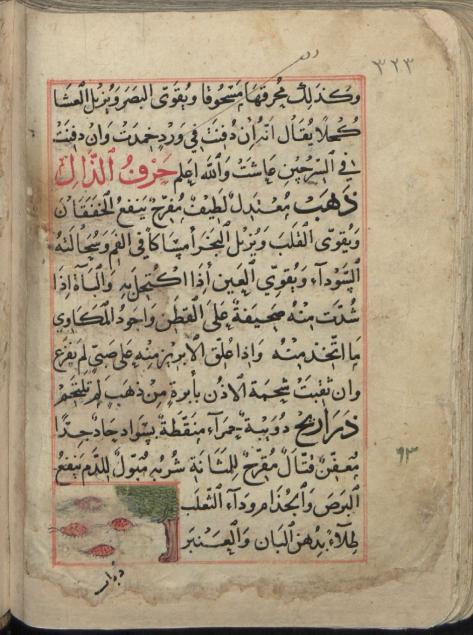 ٣٢٣
وكذلك محرقها مسحوقا ويقوى البصر ويزيل العشا
كحلا يقال انه ان دفنت في ورد خمدت وان دفنت
في السرجين عاشت والله اعلم حرف الذال
ذهب معتدل لطيف مفرح ينفع الخفقان
ويقوى القلب ويزيل البخر امساكا في الفم وسحالته
السوداء ويقوي العين اذا اكتحل به والباة اذا
شدت منه صحيفة على القطن واجود المكاوي
ما اتخذ منه واذا علق الابريز منه على صبي لم يفزع
وان ثقبت شحمة الاذن بأبرة من ذهب لم تلتحم
ذراريح دويبة حمراء منقطة بسواد حاد جدا
معفن قتال مقرح للمثانة شربه مبول للدم ينفع
البرص والجذام وداء الثعلب
طلاء بدهن البان والعنبر
٩٣